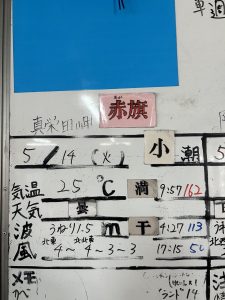 車週
赤旗
真栄田岬
小潮
5/14(火)
気温 25℃ 満 9:57 162
天気 曇
波 うねり1.5m 干 4:27 113
風 北東 北北東
4〜4-3-3 17:15 5
メモ
ランド14